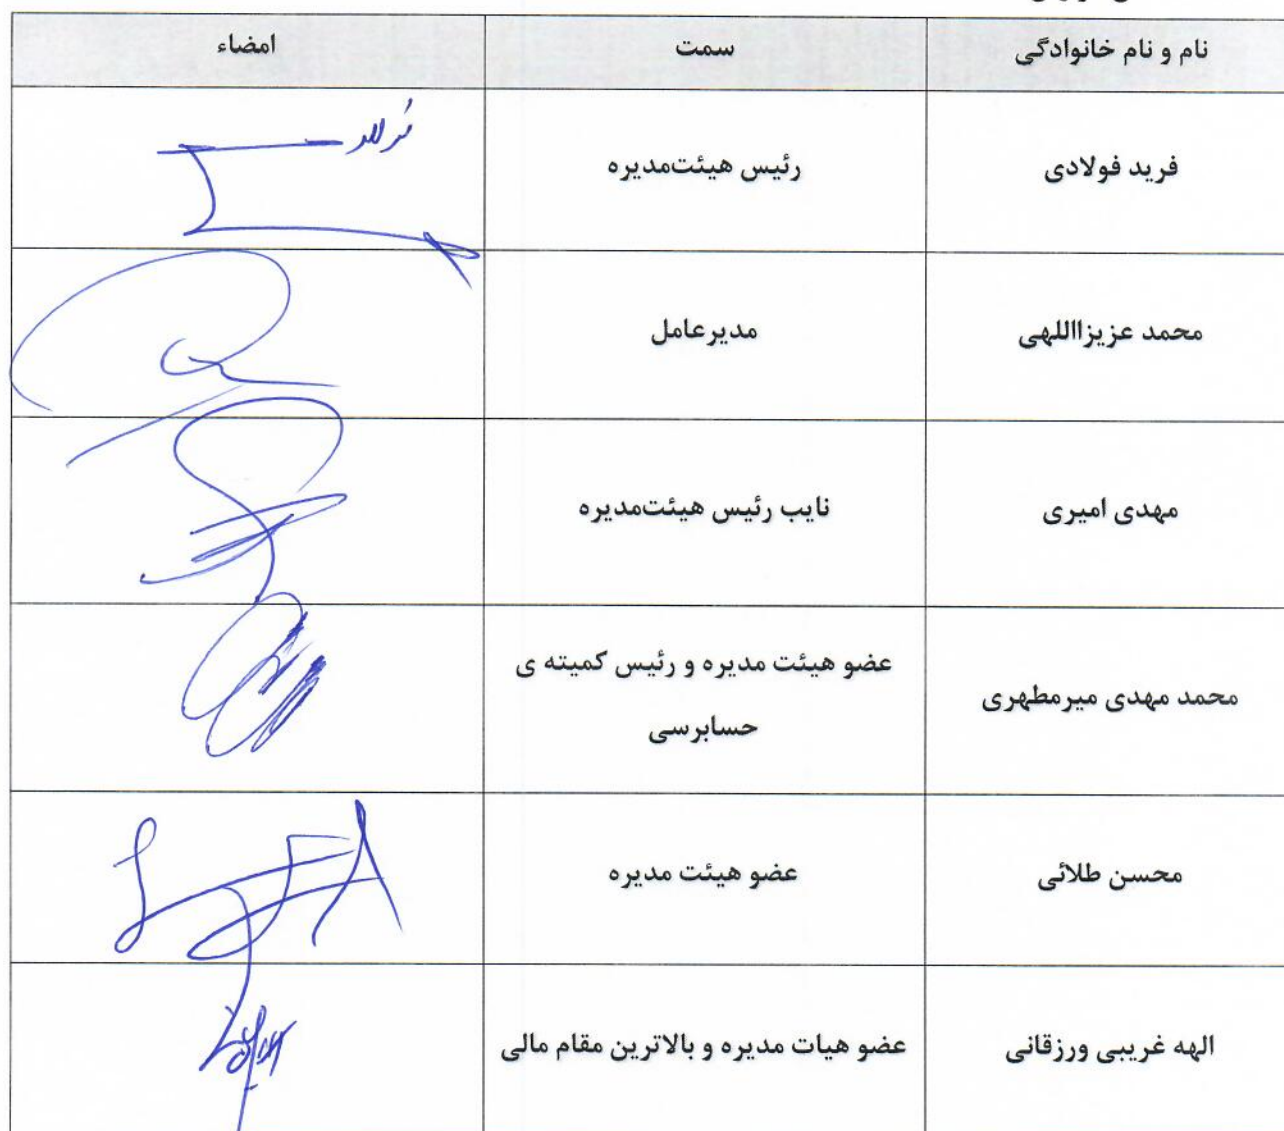 نام و نام خانوادگی سمت امضاء
فرید فولادی رئیس هیئت‌مدیره
محمد عزیزااللهی مدیرعامل
مهدی امیری نایب رئیس هیئت‌مدیره
محمد مهدی میرمطهری عضو هیئت مدیره و رئیس کمیته ی
حسابرسی
محسن طلائی عضو هیئت مدیره
الهه غریبی ورزقانی عضو هیات مدیره و بالاترین مقام مالی